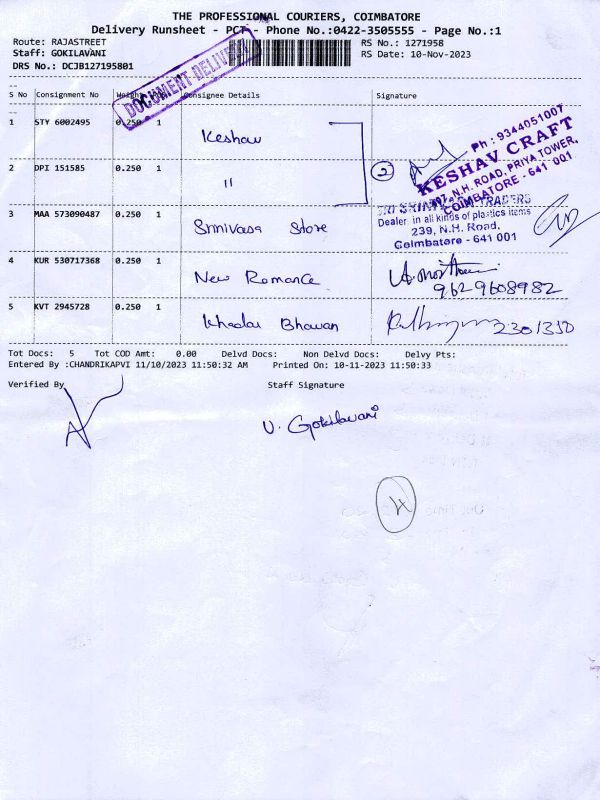 THE PROFESSIONAL COURIERS, COIMBATORE
Delivery Runsheet - PCT - Phone No.:0422-3505555 - Page No.:1
Route: RAJASTREET RS No.: 1271958
Staff: GOKILAVANI RS Date: 10-Nov-2023
DRS No.: DCJB127195801
DOCUMENT DELIVERY
S No Consignment No Weight Consignee Details Signature
1 STY 6002495 0.250 1 Keshav
2 DPI 151585 0.250 1 "
2
Ph : 9344051007
KESHAV CRAFT
N.H. ROAD, PRIYA TOWER,
COIMBATORE - 641 001
3 MAA 573090487 0.250 1 Srinivasa Store
TRADERS
Dealer in all kinds of plastics items
239, N.H. Road,
Coimbatore - 641 001
4 KUR 530717368 0.250 1 New Romance
9629608982
5 KVT 2945728 0.250 1 Khadai Bhavan 2301350
Tot Docs: 5 Tot COD Amt: 0.00 Delvd Docs: Non Delvd Docs: Delvy Pts:
Entered By :CHANDRIKAPVI 11/10/2023 11:50:32 AM Printed On: 10-11-2023 11:50:33
Verified By Staff Signature
V. Gokilavani